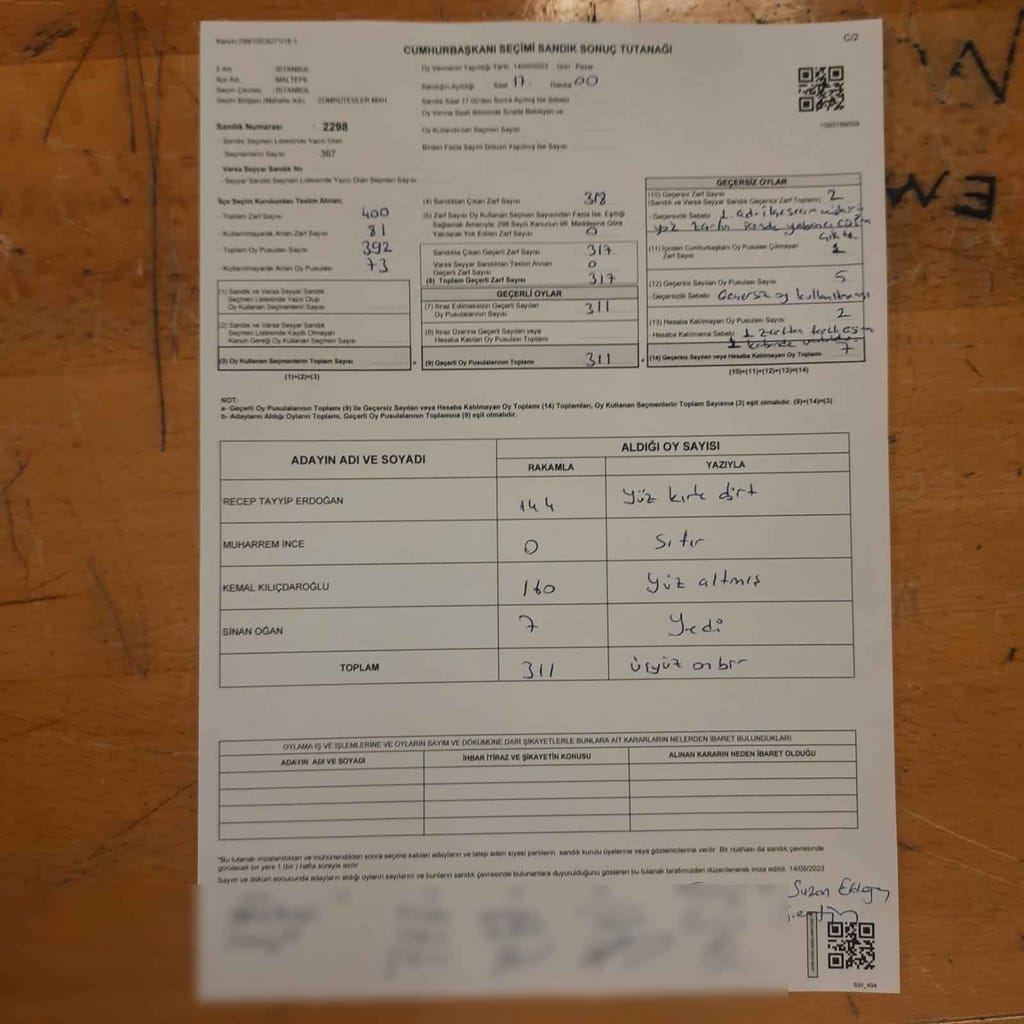 CUMHURBAŞKANI SEÇİMİ SANDIK SONUÇ TUTANAĞI
C/2
İl Adı : İSTANBUL
İlçe Adı : MALTEPE
Seçim Çevresi : İSTANBUL
Seçim Bölgesi (Mahalle Adı) : ZÜMRÜTEVLER MAH.
Sandık Numarası : 2298
- Sandık Seçmen Listesinde Yazılı Olan
Seçmenlerin Sayısı : 367
Varsa Seyyar Sandık No :
- Seyyar Sandık Seçmen Listesinde Yazılı Olan Seçmen Sayısı :
Oy Vermenin Yapıldığı Tarih 14/05/2023 Gün : Pazar
Sandığın Açıldığı Saat 17. Dakika 00
Sandık Saat 17.00'den Sonra Açılmış İse Sebebi
Oy Verme Saati Bitiminde Sırada Bekleyen ve
Oy Kullandırılan Seçmen Sayısı
Birden Fazla Sayım Döküm Yapılmış İse Sayısı
İlçe Seçim Kurulundan Teslim Alınan;
- Toplam Zarf Sayısı 400
- Kullanılmayarak Artan Zarf Sayısı 81
- Toplam Oy Pusulası Sayısı 392
- Kullanılmayarak Artan Oy Pusulası 73
(1) Sandık ve Varsa Seyyar Sandık
Seçmen Listesinde Yazılı Olup
Oy Kullanan Seçmenlerin Sayısı
(2) Sandık ve Varsa Seyyar Sandık
Seçmen Listesinde Kayıtlı Olmayan
Kanun Gereği Oy Kullanan Seçmen Sayısı
(3) Oy Kullanan Seçmenlerin Toplam Sayısı
(1)+(2)=(3)
(4) Sandıktan Çıkan Zarf Sayısı 318
(5) Zarf Sayısı Oy Kullanan Seçmen Sayısından Fazla İse, Eşitliği
Sağlamak Amacıyla, 298 Sayılı Kanunun 98. Maddesine Göre
Yakılarak Yok Edilen Zarf Sayısı 0
Sandıkta Çıkan Geçerli Zarf Sayısı 317
Varsa Seyyar Sandıktan Teslim Alınan
Geçerli Zarf Sayısı 0
(6) Toplam Geçerli Zarf Sayısı 317
GEÇERLİ OYLAR
(7) İtiraz Edilmeksizin Geçerli Sayılan
Oy Pusulalarının Sayısı 311
(8) İtiraz Üzerine Geçerli Sayılan veya
Hesaba Katılan Oy Pusulası Toplamı
= (9) Geçerli Oy Pusulalarının Toplamı 311
GEÇERSİZ OYLAR
(10) Geçersiz Zarf Sayısı 2
(Sandık ve Varsa Seyyar Sandık Geçersiz Zarf Toplamı)
- Geçersizlik Sebebi
(11) İçinden Cumhurbaşkanı Oy Pusulası Çıkmayan
Zarf Sayısı 1
(12) Geçersiz Sayılan Oy Pusulası Sayısı 5
- Geçersizlik Sebebi Geçersiz oy
(13) Hesaba Katılmayan Oy Pusulası Sayısı 2
- Hesaba Katılmama Sebebi
+ (14) Geçersiz Sayılan veya Hesaba Katılmayan Oy Toplamı 7
(10)+(11)+(12)+(13)=(14)
NOT:
a- Geçerli Oy Pusulalarının Toplamı (9) ile Geçersiz Sayılan veya Hesaba Katılmayan Oy Toplamı (14) Toplamları, Oy Kullanan Seçmenlerin Toplam Sayısına (3) eşit olmalıdır. (9)+(14)=(3)
b- Adayların Aldığı Oyların Toplamı, Geçerli Oy Pusulalarının Toplamına (9) eşit olmalıdır.
ADAYIN ADI VE SOYADI ALDIĞI OY SAYISI
RAKAMLA YAZIYLA
RECEP TAYYİP ERDOĞAN 144 Yüz kırk dört
MUHARREM İNCE 0 Sıfır
KEMAL KILIÇDAROĞLU 160 Yüz altmış
SİNAN OĞAN 7 Yedi
TOPLAM 311 üçyüz onbir
OYLAMA İŞ VE İŞLEMLERİNE VE OYLARIN SAYIM VE DÖKÜMÜNE DAİR ŞİKAYETLERLE BUNLARA AİT KARARLARIN NELERDEN İBARET BULUNDUKLARI
ADAYIN ADI VE SOYADI İHBAR İTİRAZ VE ŞİKAYETİN KONUSU ALINAN KARARIN NEDEN İBARET OLDUĞU
*Bu tutanak imzalandıktan ve mühürlendikten sonra seçime katılan adayların ve talep eden siyasi partilerin sandık kurulu üyelerine veya gözlemcilerine verilir. Bir nüshası da sandık çevresinde
görülecek bir yere 1 (bir) hafta süreyle asılır.
Sayım ve döküm sonucunda adayların aldığı oyların sayılarını ve bunların sandık çevresinde bulunanlara duyurulduğunu gösteren bu tutanak tarafımızdan düzenlenerek imza edildi. 14/05/2023
Suzan